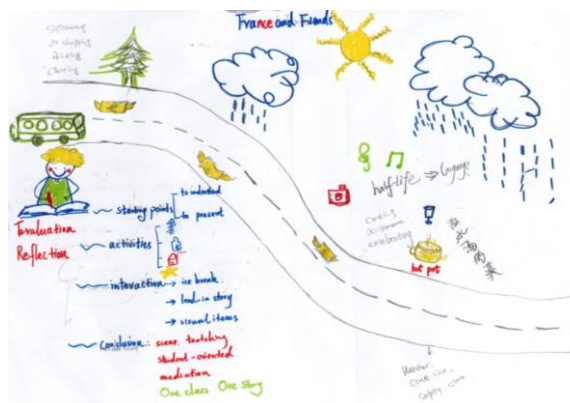 France and Friends
half-life → language
cooking
celebrating
hot pot
Evaluation
Reflection
starting points
to understand
to present
activities
interaction → ice break
→ lead-in story
→ visual items
conclusion: scene teaching
student-oriented
mediation
One class One story
Weather
safety